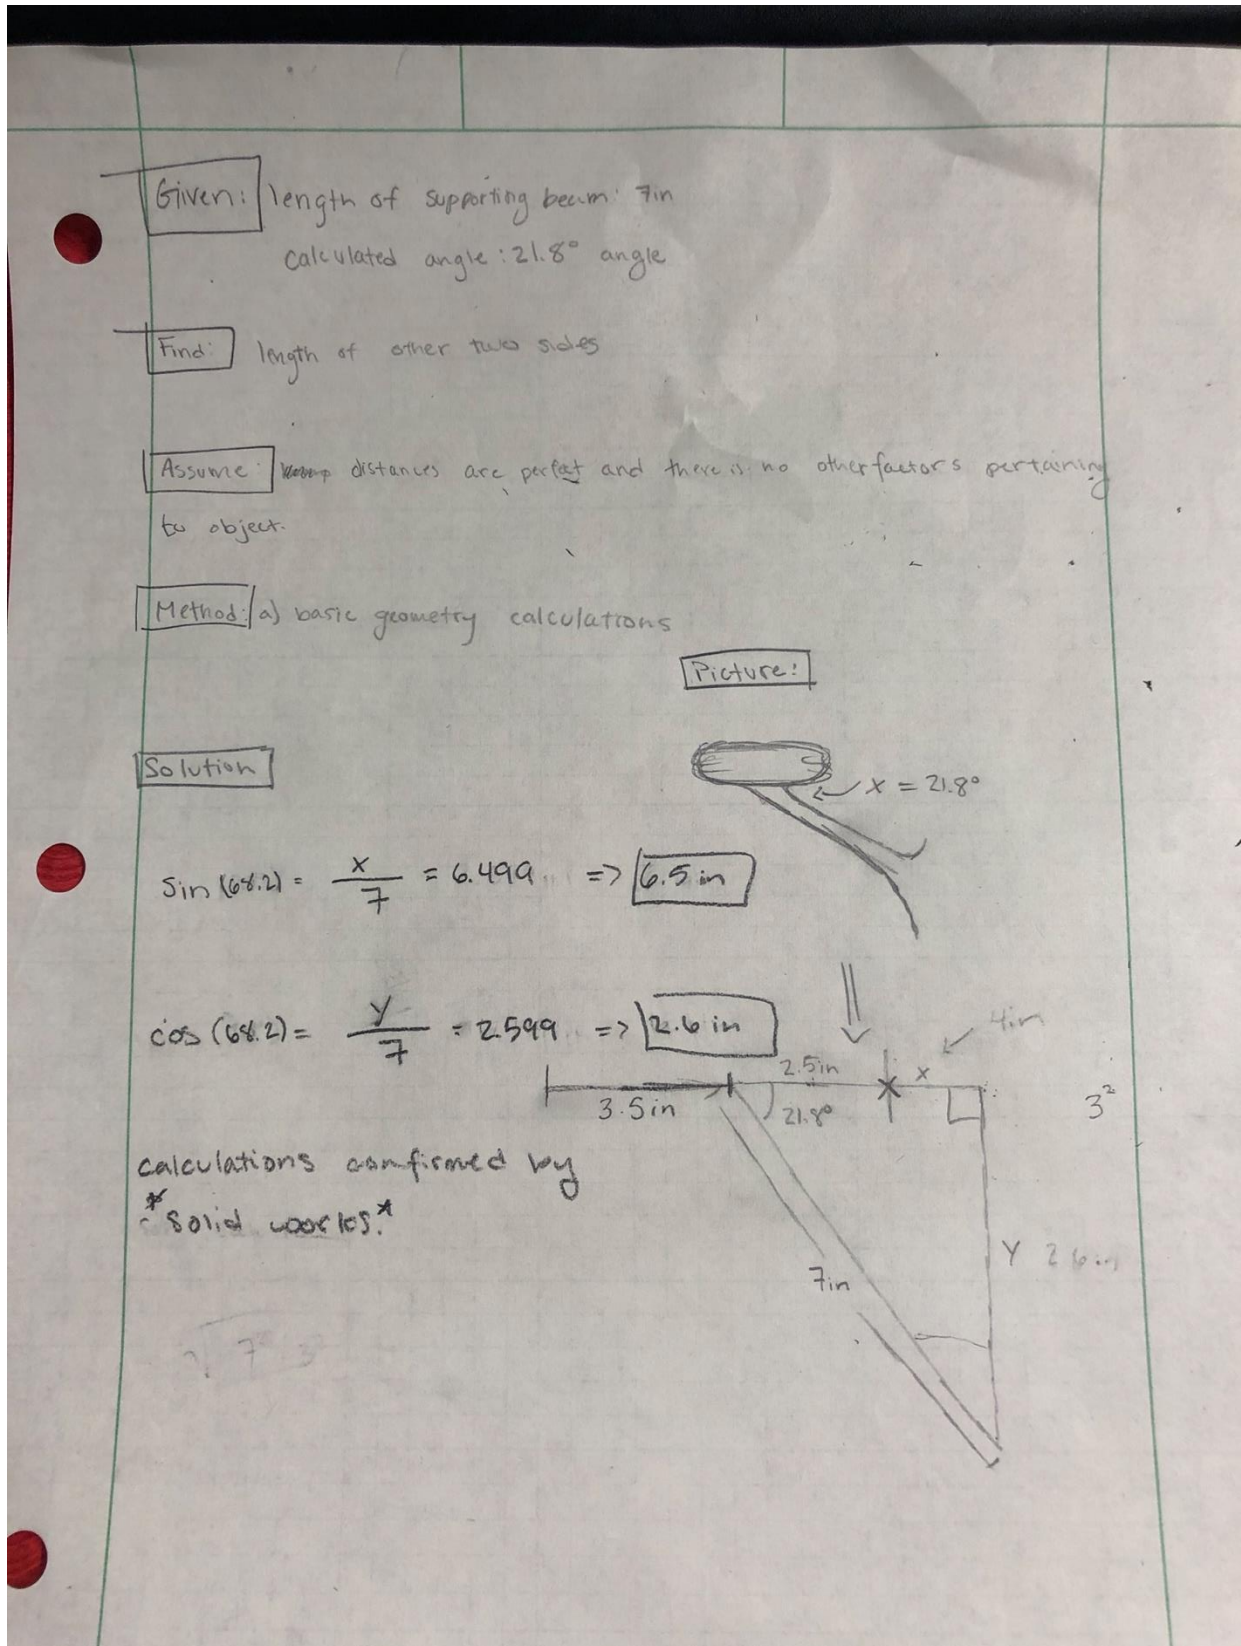 Given: length of supporting beam: 7in
calculated angle: 21.8° angle
Find: length of other two sides
Assume: distances are perfect and there is no other factors pertaining
to object.
Method: a) basic geometry calculations
Picture:
Solution
x = 21.8°
sin (68.2) = x/7 = 6.499 => 6.5 in
cos (68.2) = y/7 = 2.599 => 2.6 in
4in
2.5in x
3.5in 21.8° 3²
calculations confirmed by
*solid works.*
Y 2.6in
7in
7 3